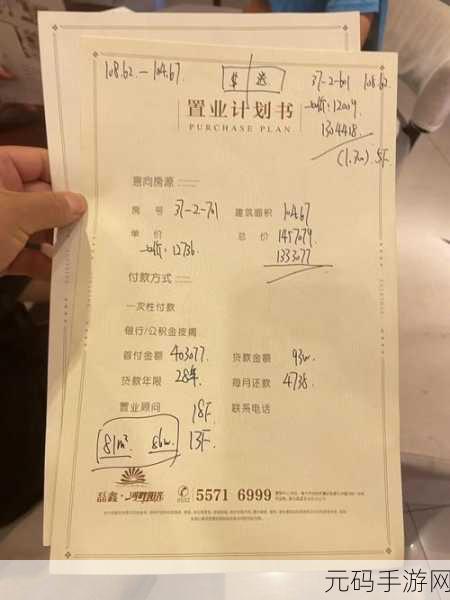 108.62 — 104.67
37-2-601 108.62
一口价:12009
1304418
置业计划书
PURCHASE PLAN
意向房源
房 号 37-2-701 建筑面积 104.67
单 价 总 价 1457079
一口价:12736 1333077
付款方式
一次性付款
银行/公积金按揭
首付金额 403077 贷款金额 93w
贷款年限 28年 每月还款 4738
置业顾问 18F 联系电话
81m² 86w 13F
5571 6999
元码手游网